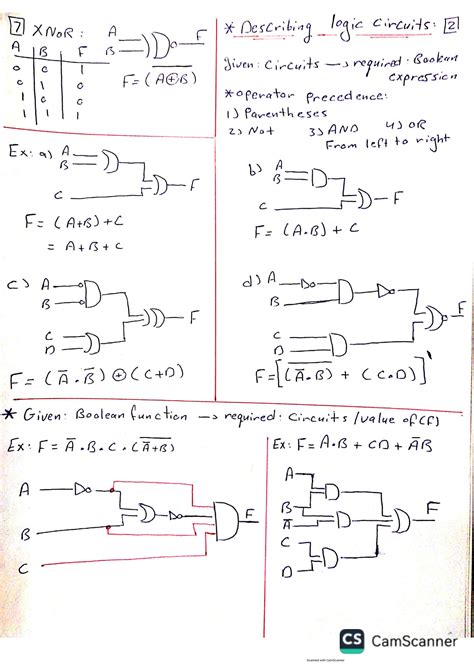 7 XNOR:
A
B
F
A B F
0 0 1
0 1 0
1 0 0
1 1 1
F = (A⊕B)
* Describing logic circuits: 2
Given: Circuits → required: Boolean
expression
* operator precedence:
1) Parentheses
2) Not 3) AND 4) OR
From left to right
Ex: a) A
B
C
F
F = (A+B)+C
= A+B+C
b) A
B
C
F
F = (A.B) + C
c) A
B
C
D
F
F = (A̅ . B̅) ⊕ (C+D)
d) A
B
C
D
F
F = [(A̅.B) + (C.D)]'
* Given: Boolean function → required: Circuits / value of (F)
Ex: F = A̅ . B . C . (A̅+B)
A
B
C
F
Ex: F = A.B + CD + A̅B
A
B
A̅
C
D
F
CS CamScanner
Scanned with CamScanner